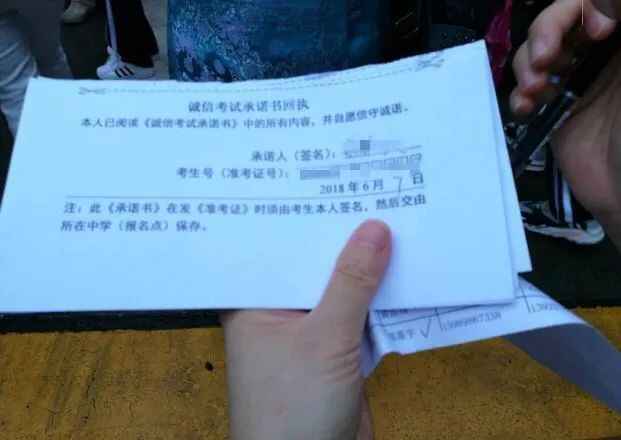 诚信考试承诺书回执
本人已阅读《诚信考试承诺书》中的所有内容，并自愿信守诚诺。
承诺人（签名）：
考生号（准考证号）：
2018 年 6 月 7 日
注：此《承诺书》在发《准考证》时须由考生本人签名，然后交由
所在中学（报名点）保存。